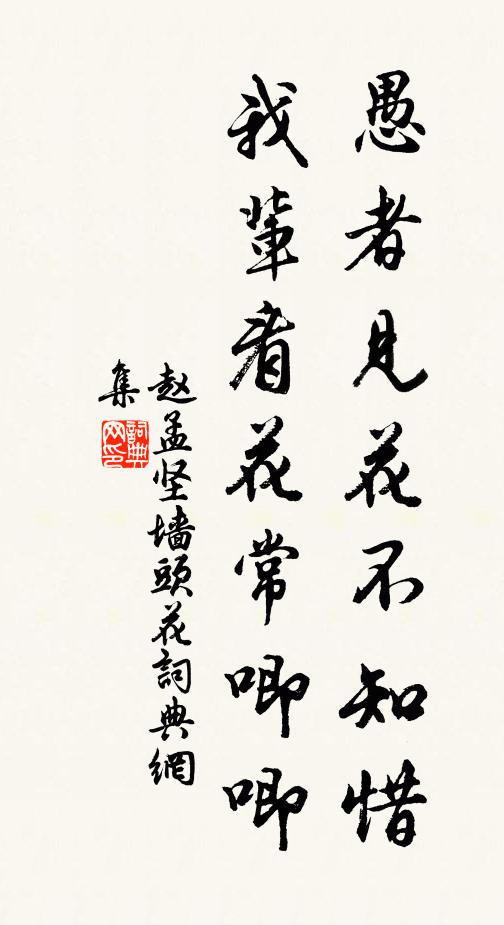 愚者見花不知惜
我輩看花常唧唧
赵孟坚墙頭花詞典網
集
詞典
网印